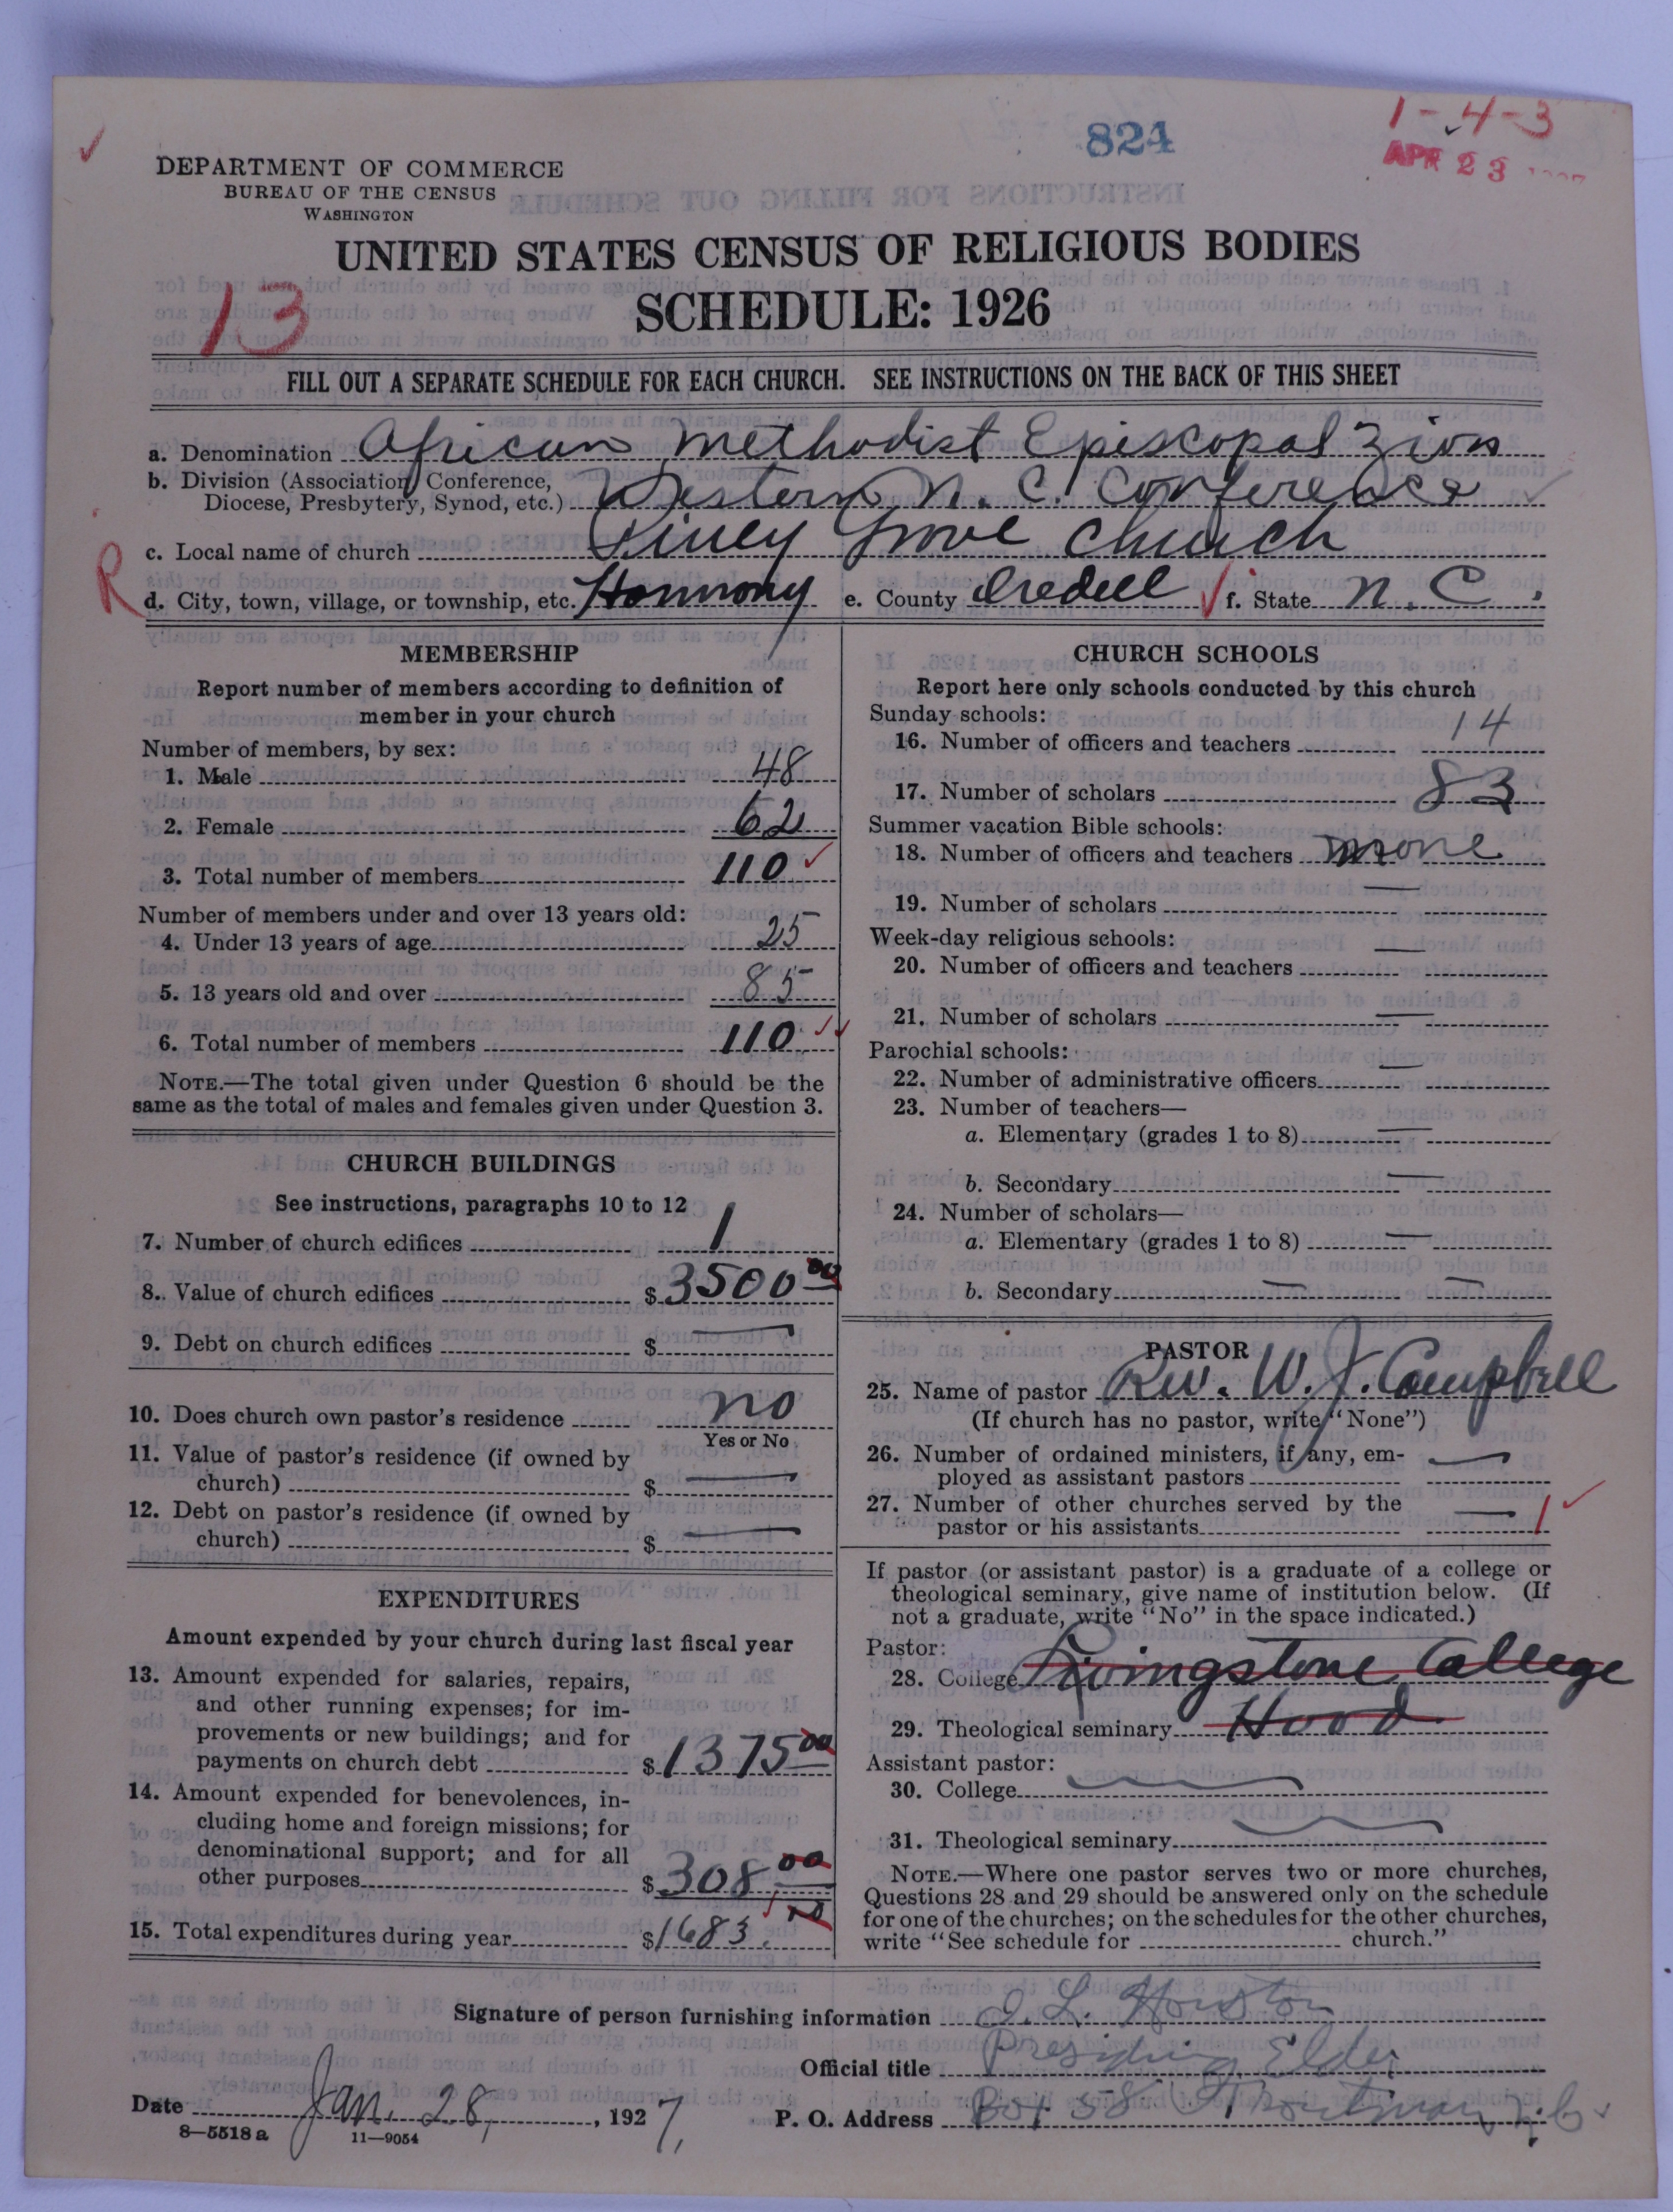 824
1-4-3
APR 23
DEPARTMENT OF COMMERCE
BUREAU OF THE CENSUS
WASHINGTON
UNITED STATES CENSUS OF RELIGIOUS BODIES
13
SCHEDULE: 1926
FILL OUT A SEPARATE SCHEDULE FOR EACH CHURCH. SEE INSTRUCTIONS ON THE BACK OF THIS SHEET
a. Denomination African Methodist Episcopal Zion
b. Division (Association, Conference,
Diocese, Presbytery, Synod, etc.) Western N. C. Conference
c. Local name of church Piney Grove Church
R
d. City, town, village, or township, etc. Harmony e. County Iredell f. State N. C.
MEMBERSHIP
Report number of members according to definition of
member in your church
Number of members, by sex:
1. Male 48
2. Female 62
3. Total number of members 110
Number of members under and over 13 years old:
4. Under 13 years of age 25
5. 13 years old and over 85
6. Total number of members 110
NOTE.—The total given under Question 6 should be the
same as the total of males and females given under Question 3.
CHURCH BUILDINGS
See instructions, paragraphs 10 to 12
7. Number of church edifices 1
8. Value of church edifices $3500 00
9. Debt on church edifices $ —
10. Does church own pastor's residence no
Yes or No
11. Value of pastor's residence (if owned by
church) $ —
12. Debt on pastor's residence (if owned by
church) $ —
EXPENDITURES
Amount expended by your church during last fiscal year
13. Amount expended for salaries, repairs,
and other running expenses; for im-
provements or new buildings; and for
payments on church debt $1375 00
14. Amount expended for benevolences, in-
cluding home and foreign missions; for
denominational support; and for all
other purposes $308 00
15. Total expenditures during year $1683.
CHURCH SCHOOLS
Report here only schools conducted by this church
Sunday schools:
16. Number of officers and teachers 14
17. Number of scholars 83
Summer vacation Bible schools:
18. Number of officers and teachers none
19. Number of scholars —
Week-day religious schools:
20. Number of officers and teachers —
21. Number of scholars —
Parochial schools:
22. Number of administrative officers —
23. Number of teachers—
a. Elementary (grades 1 to 8) —
b. Secondary —
24. Number of scholars—
a. Elementary (grades 1 to 8) —
b. Secondary — —
PASTOR
25. Name of pastor Rev. W. J. Campbell
(If church has no pastor, write "None")
26. Number of ordained ministers, if any, em-
ployed as assistant pastors —
27. Number of other churches served by the
pastor or his assistants — 1
If pastor (or assistant pastor) is a graduate of a college or
theological seminary, give name of institution below. (If
not a graduate, write "No" in the space indicated.)
Pastor:
28. College Livingstone College
29. Theological seminary Hood
Assistant pastor:
30. College
31. Theological seminary
NOTE.—Where one pastor serves two or more churches,
Questions 28 and 29 should be answered only on the schedule
for one of the churches; on the schedules for the other churches,
write "See schedule for church."
Signature of person furnishing information L. Houston
Official title Presiding Elder
Date Jan. 28, 1927, P. O. Address Box 58 Troutman, N. C.
8—5518 a 11—9054